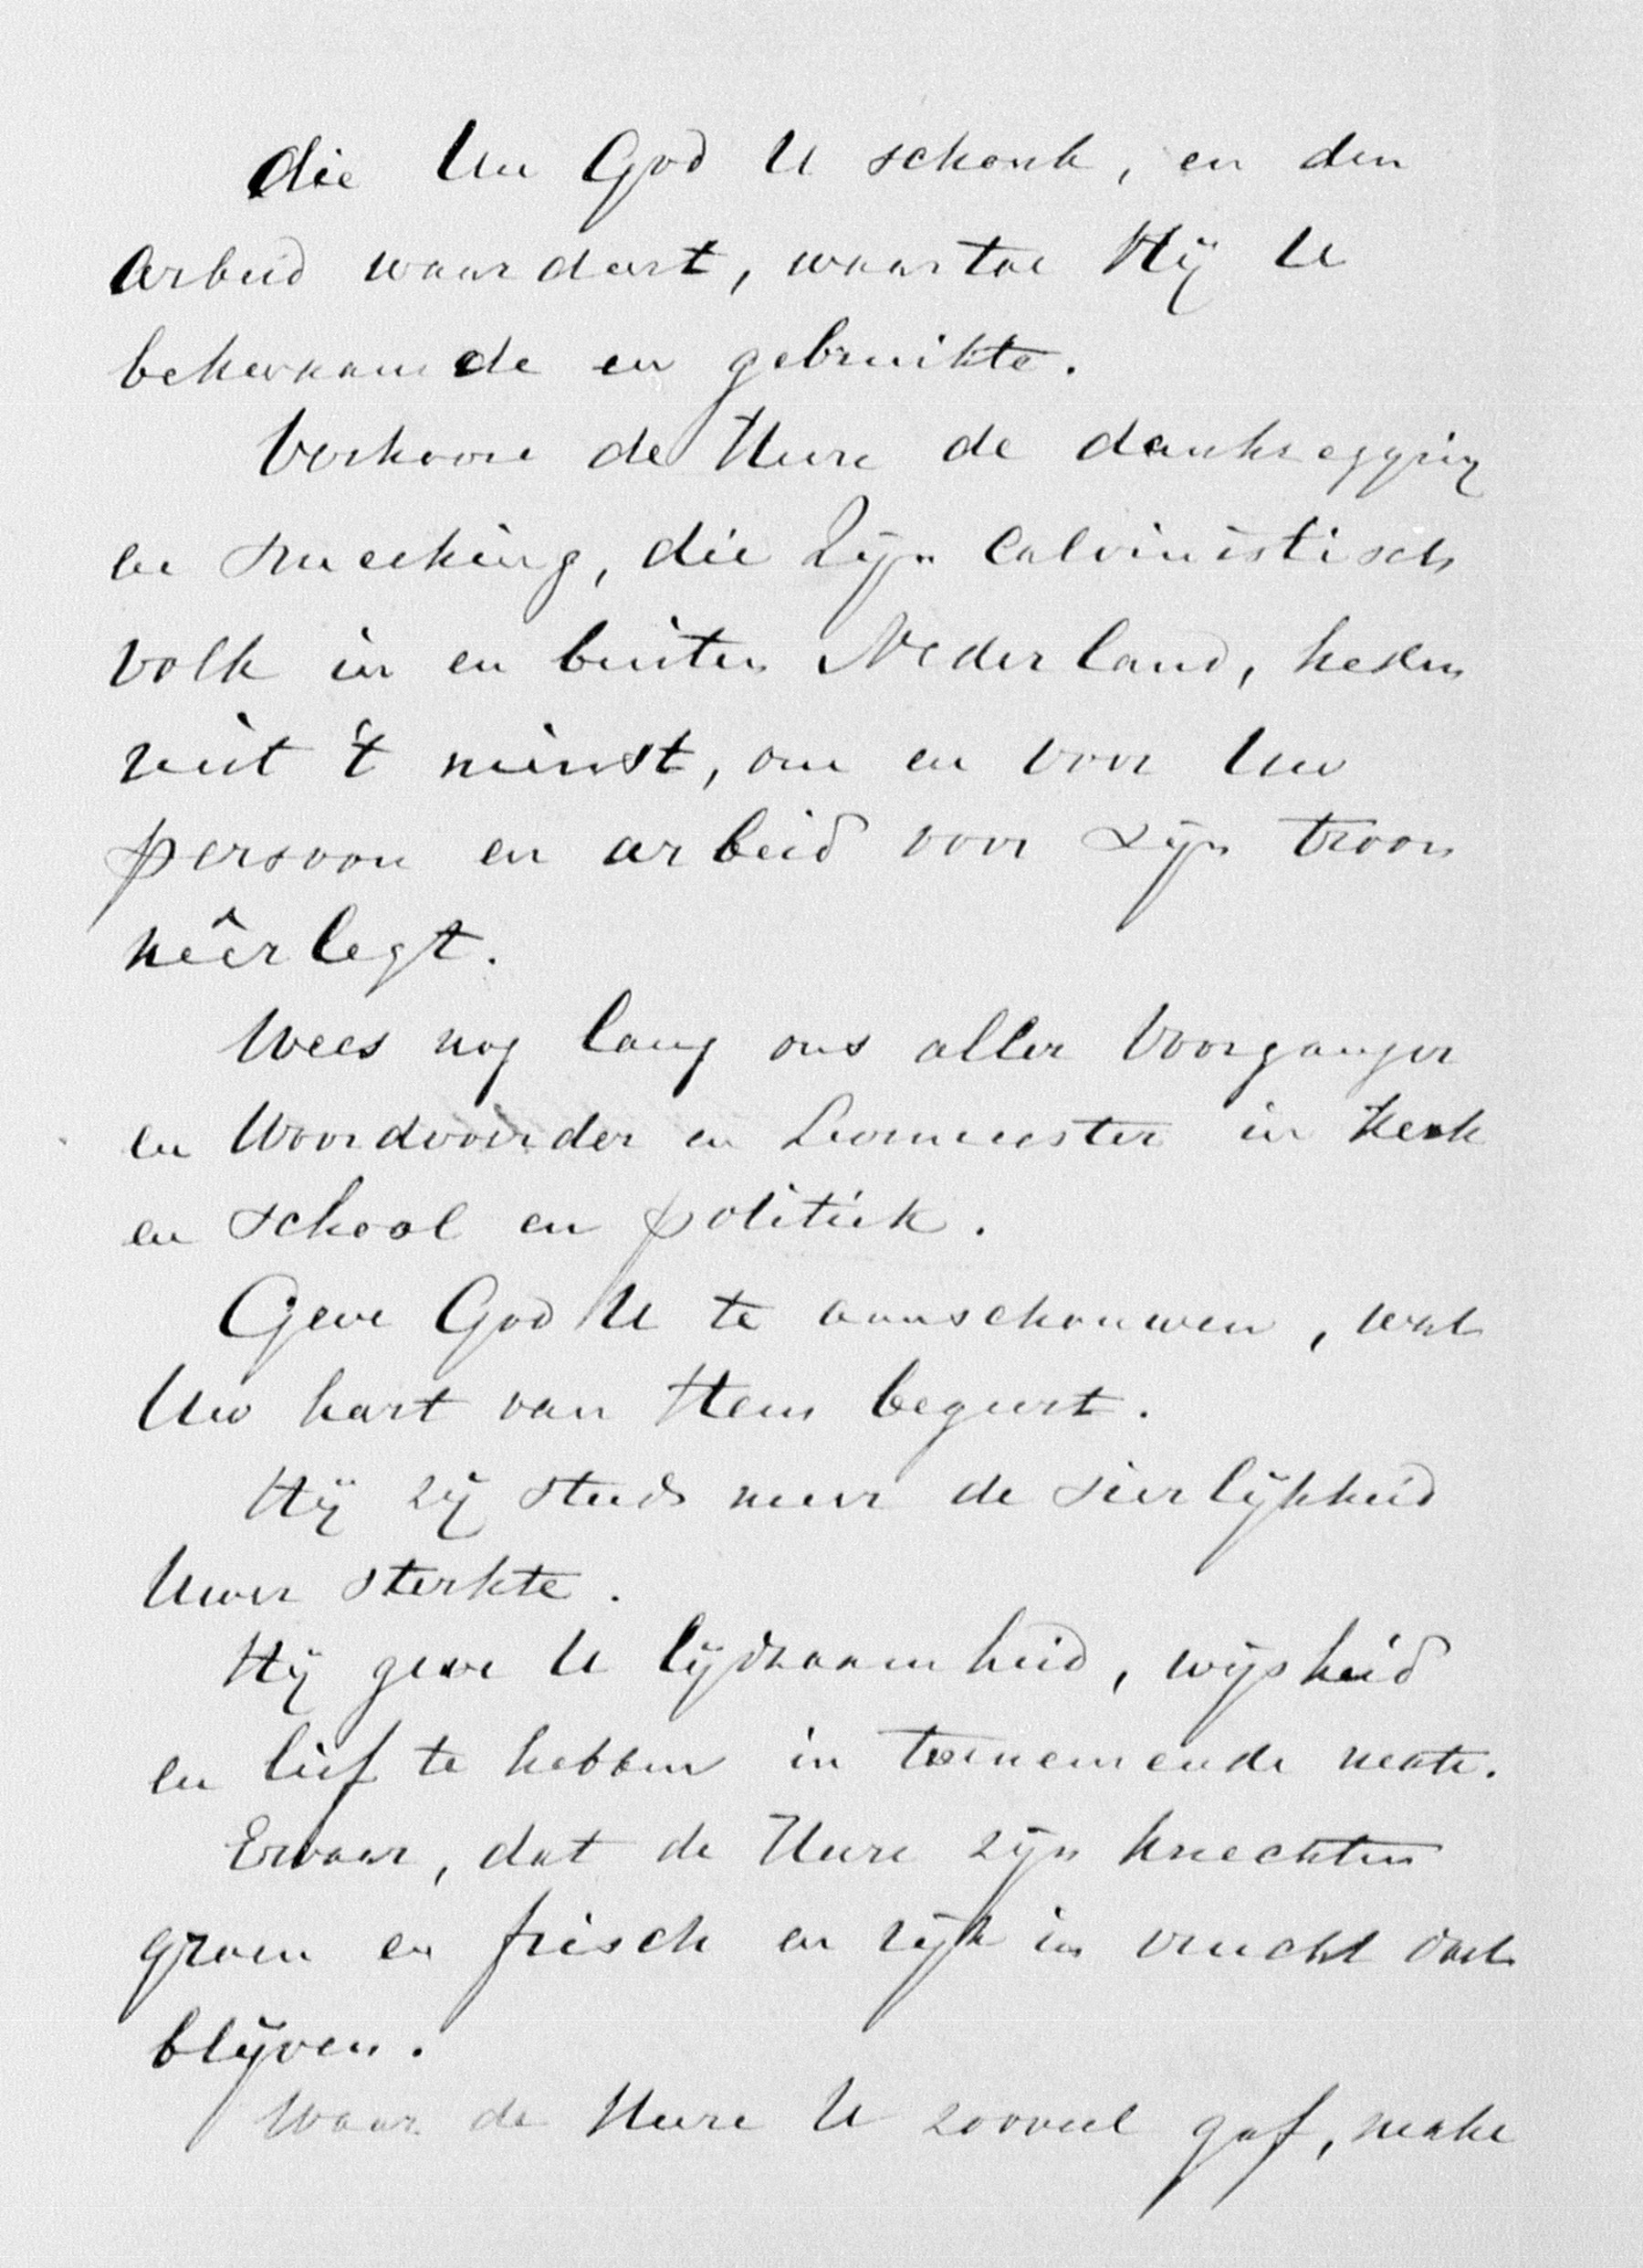 die Uw God U schonk, en den
Arbeid waardeert, waartoe Hij U
bekwaamde en gebruikte.
Verhoore de Heere de dankzegging
en smeeking, die Zijn Calvinistisch
volk in en buiten Nederland, heden
niet 't minst, om en voor Uw
persoon en arbeid voor Zijn troon
neêrlegt.
Wees nog lang ons aller Voorganger
en Woordvoerder en Leermeester in Kerk
en School en politiek.
Geve God U te aanschouwen, wat
Uw hart van Hem begeert.
Hij zij steeds meer de sierlijkheid
Uwer sterkte.
Hij geve U lijdzaamheid, wijsheid
en lief te hebben in toenemende mate.
Ervaar, dat de Heere zijn knechten
groen en frisch en rijk in vrucht doet
blijven.
Waar de Heere U zooveel gaf, make